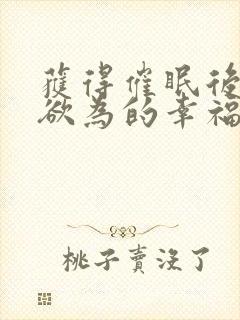 獲得催眠後
欲為的幸福
桃子賣沒了